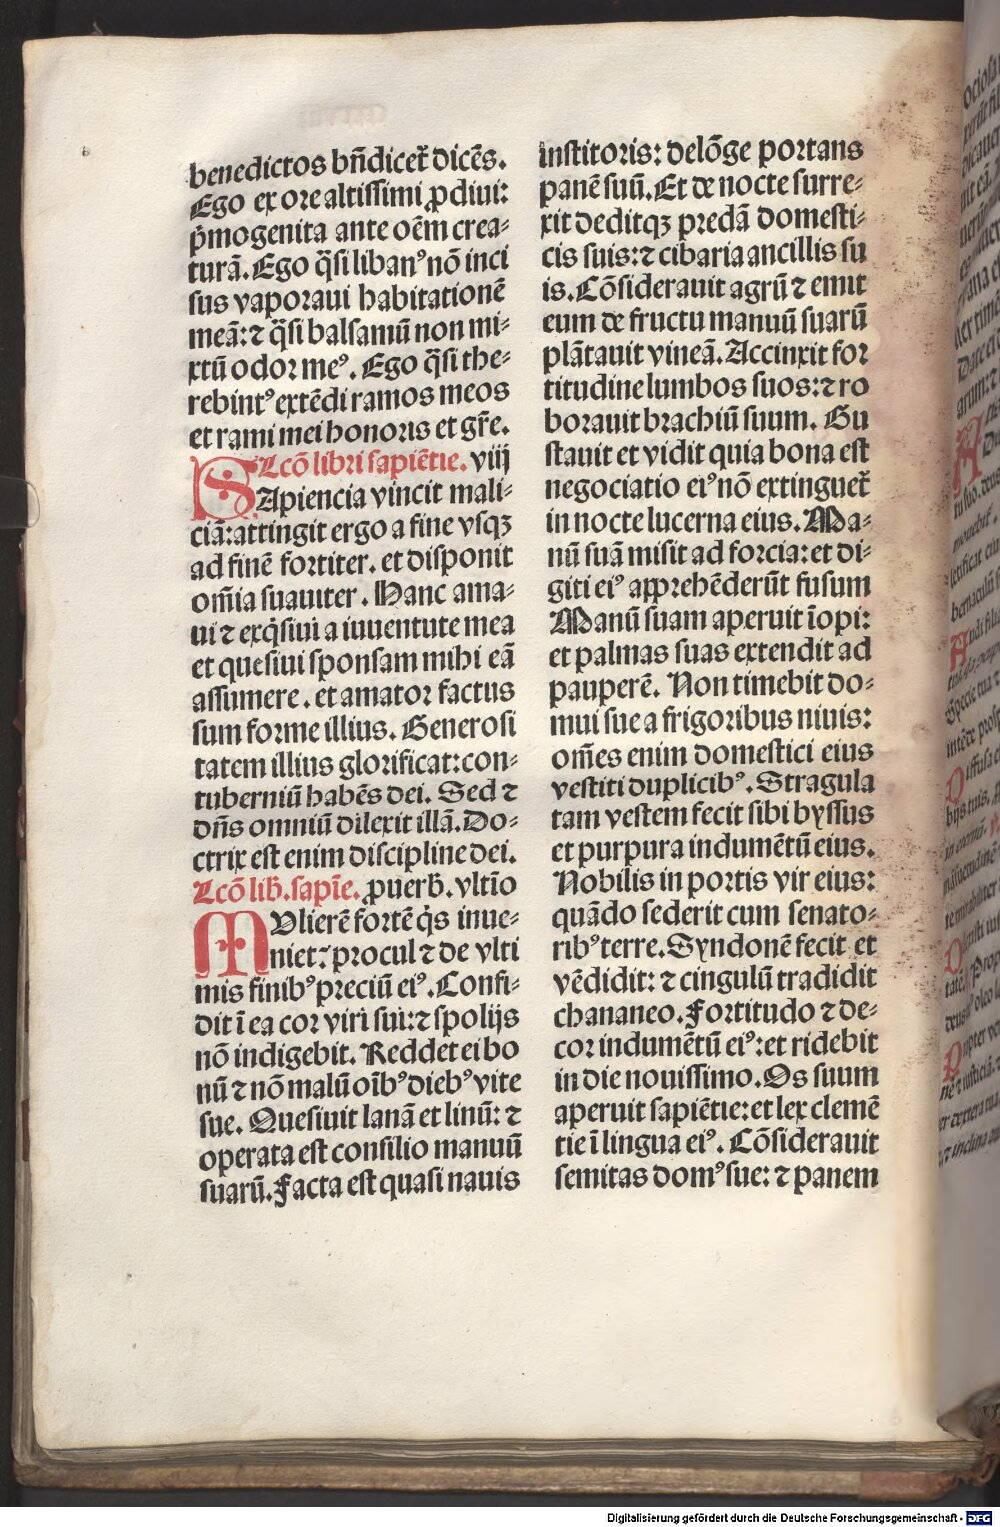 benedictos bñdicet᷑ dicẽs.
Ego ex ore altissimi ꝓdiui:
p̃mogenita ante oẽm crea⸗
turã. Ego q̃si libanꝰ nõ inci
sus vaporaui habitationẽ
meã: ⁊ q̃si balsamũ non mi⸗
xtũ odor meꝰ. Ego q̃si the⸗
rebintꝰ extẽdi ramos meos
et rami mei honoris et gr̃e.
Lcõ libri sapiẽtie. viij
SApiencia vincit mali⸗
ciã: attingit ergo a fine vsqꝫ
ad finẽ fortiter. et disponit
om̃ia suauiter. Hanc ama⸗
ui ⁊ exq̃siui a iuuentute mea
et quesiui sponsam mihi eã
assumere. et amator factus
sum forme illius. Generosi
tatem illius glorificat: con⸗
tuberniũ habẽs dei. Sed ⁊
dñs omniũ dilexit illã. Do⸗
ctrix est enim discipline dei.
Lcõ lib̃. sapiẽ. ꝓuerb̃. vltĩo
MVlierẽ fortẽ q̃s inue⸗
niet: procul ⁊ de vlti
mis finibꝰ preciũ eiꝰ. Confi⸗
dit ĩ ea cor viri sui: ⁊ spolijs
nõ indigebit. Reddet ei bo
nũ ⁊ nõ malũ oĩbꝰ diebꝰ vite
sue. Quesiuit lanã et linũ: ⁊
operata est consilio manuũ
suarũ. Facta est quasi nauis
institoris: de lõge portans
panẽ suũ. Et de nocte surre⸗
xit deditqꝫ predã domesti⸗
cis suis: ⁊ cibaria ancillis su
is. Cõsiderauit agrũ ⁊ emit
eum de fructu manuũ suarũ
plãtauit vineã. Accinxit for
titudine lumbos suos: ⁊ ro
borauit brachiũ suum. Gu
stauit et vidit quia bona est
negociatio eiꝰ nõ extinguet᷑
in nocte lucerna eius. Ma⸗
nũ suã misit ad forcia: et di⸗
giti eiꝰ apprehẽderũt fusum
Manũ suam aperuit ĩopi:
et palmas suas extendit ad
pauperẽ. Non timebit do⸗
mui sue a frigoribus niuis:
om̃es enim domestici eius
vestiti duplicibꝰ. Stragula
tam vestem fecit sibi byssus
et purpura indumẽtũ eius.
Nobilis in portis vir eius:
quãdo sederit cum senato⸗
ribꝰ terre. Syndonẽ fecit et
vẽdidit: ⁊ cingulũ tradidit
chananeo. Fortitudo ⁊ de⸗
cor indumẽtũ eiꝰ: et ridebit
in die nouissimo. Os suum
aperuit sapiẽtie: et lex clemẽ
tie ĩ lingua eiꝰ. Cõsiderauit
semitas domꝰ sue: ⁊ panem
Digitalisierung gefördert durch die Deutsche Forschungsgemeinschaft - DFG